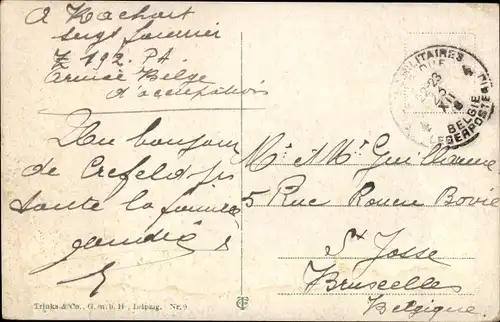 A Rachart
sergt fourrier
Z 192. P.A.
Armée Belge
d'occupation
Un bonjour
de Crefeld
toute la
MILITAIRES
22-23
XII
BELGIE
LEGERPOSTERIJ
Mr & Mme Guillaume
5 Rue Rouen Bovie
St Josse
Bruxelles
Belgique
Trinks & Co., G. m. b. H., Leipzig. Nr. 9